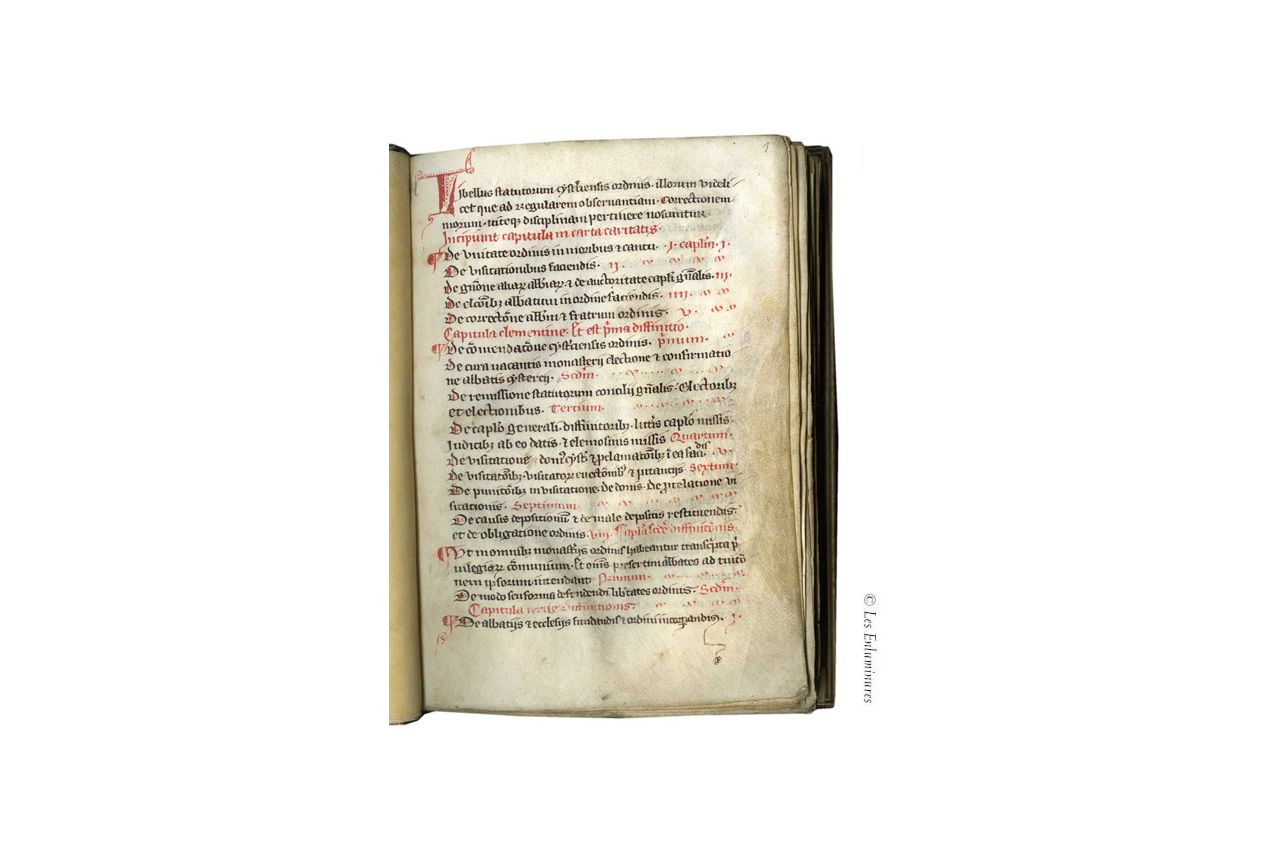 1
Libellus statutorum cysterciensis ordinis. illorum videli
cet que ad regularem observantiam. correctionem
morum. disciplinam pertinere noscuntur.
Incipiunt capitula in carta caritatis.
De unitate ordinis in moribus & cantu. I. caplm. I.
De visitationibus faciendis. II.
De & de auctoritate capli gnalis. III.
De abbatum in ordine faciendis. IIII.
De correctoe abbm & fratrum ordinis. V.
Capitula clementine. Et est pma diffinitio.
De comendacoe cysterciensis ordinis. pmum.
De cura vacantis monasterii electione & confirmatio
ne abbatis cystercii. Scdm.
De remissione statutorum concilii gnalis. Electoribz
et electionibus. Tercium.
De caplo generali. diffinitoribz. littris caplo missis.
Iudicibz ab eo datis. & elemosinis missis Quartum.
De visitatione & V.
De visitatoribz. visitatore & pitantiis Sextum.
De in visitatione. De donis. De platione vi
sitationis. Septimum.
De causis depositionum & de male depositis restituendis.
et de obligatione ordinis. VIII. Capla scde diffinitonis.
Ut in omnibz monastriis ordinis habeantur transcpta p
uilegiorum comunium. Et omnes presertim abbates ad tuitio
nem ipsorum intendant. Primum.
De modo seu forma defendendi libtates ordinis. Scdm.
Capitula tercie diffinitionis.
De abbatiis & ecclesiis fundandis & ordini incorporandis. I.
© Les Enluminures